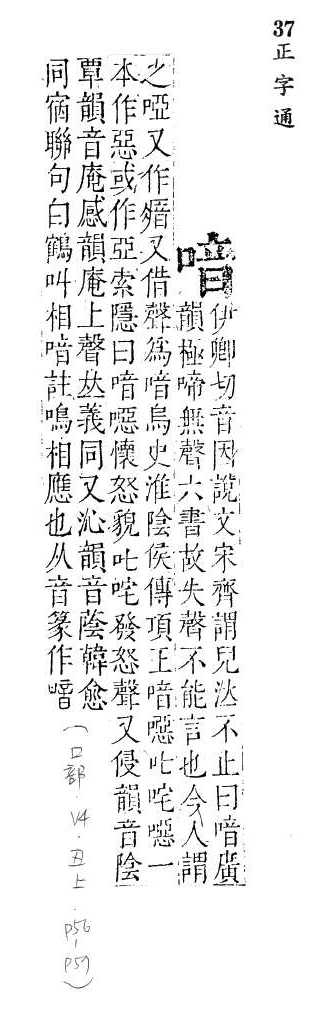 37
正字通
喑
伊卿切音因說文宋齊謂兒泣不止曰喑廣
韻極啼無聲六書故失聲不能言也今人謂
之啞又作瘖又借聲為喑烏史淮陰侯傳項王喑噁叱咤噁一
本作惡或作亞索隱曰喑噁懷怒貌叱咤發怒聲又侵韻音陰
覃韻音庵感韻庵上聲𠀤義同又沁韻音蔭韓愈
同宿聯句白鶴叫相喑註鳴相應也从音篆作
(口部 V4.丑上.p56-p59)